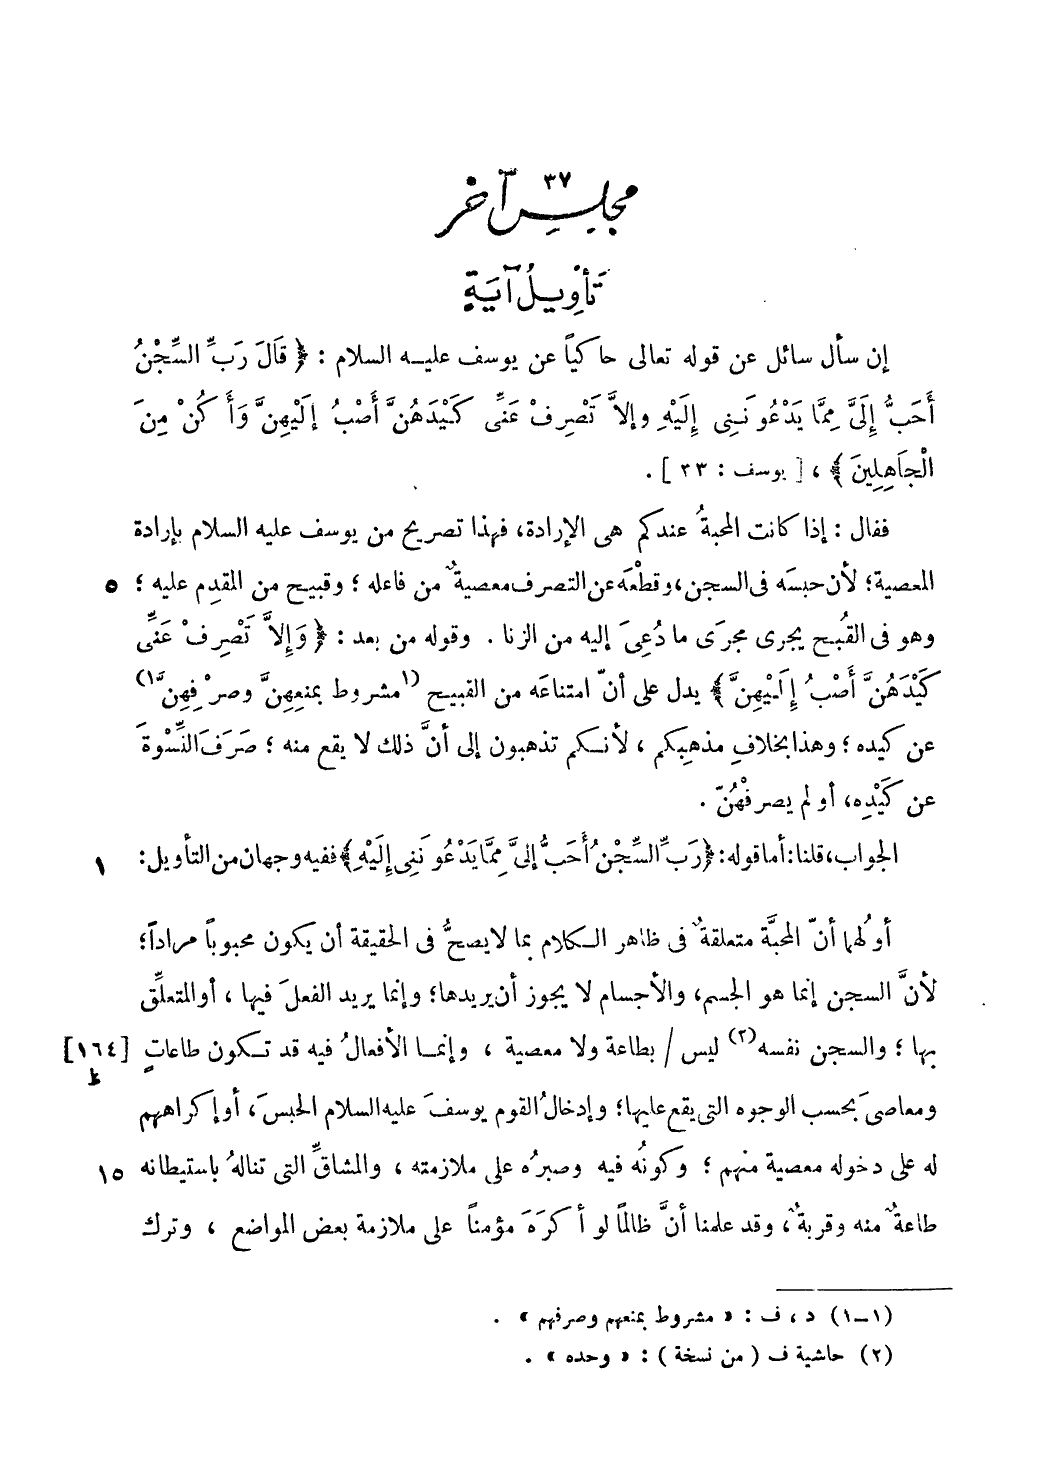 ٣٧
مجلس آخر
تَأْوِيلُ آيَةٍ
إن سأل سائل عن قوله تعالى حاكياً عن يوسف عليه السلام : ﴿ قَالَ رَبِّ السِّجْنُ
أَحَبُّ إِلَىَّ مِمَّا يَدْعُونَنِى إِلَيْهِ وإلاَّ تَصْرِفْ عَنِّى كَيْدَهُنَّ أَصْبُ إلَيْهِنَّ وَأَكُنْ مِنَ
الْجَاهِلِينَ ﴾ ، [ يوسف : ٣٣ ] .
فقال : إذا كانت المحبةُ عندكم هى الإرادة، فهذا تصريح من يوسف عليه السلام بإرادة
المعصية؛ لأن حبسَه فى السجن، وقطْعَه عن التصرف معصيةٌ من فاعله ؛ وقبيح من المقدِم عليه ؛ ٥
وهو فى القُبح يجرى مجرَى ما دُعِىَ إليه من الزنا . وقوله من بعد : ﴿ وَإِلاَّ تَصْرِفْ عَنِّى
كَيْدَهُنَّ أَصْبُ إِلَيْهِنَّ ﴾ يدل على أنّ امتناعَه من القبيح (١مشروط بمنعِهِنَّ وصرْفِهِنَّ١)
عن كيده ؛ وهذا بخلافِ مذهبِكم ، لأنكم تذهبون إلى أنَّ ذلك لا يقع منه ؛ صَرَفَ النِّسْوةَ
عن كَيْدِه، أو لم يصرفْهُنّ .
الجواب، قلنا: أما قوله: ﴿رَبِّ السِّجْنُ أَحَبُّ إِلىَّ مِمَّا يَدْعُونَنِى إِلَيْهِ﴾ ففيه وجهان من التأويل: ١
أولُهما أنّ المحبَّة متعلقةٌ فى ظاهر الكلام بما لا يصحُّ فى الحقيقة أن يكون محبوباً مراداً؛
لأنَّ السجن إنما هو الجسم، والأجسام لا يجوز أن يريدها؛ وإنما يريد الفعلَ فيها ، أو المتعلِّق
بها ؛ والسجن نفسه(٢) ليس / بطاعة ولا معصية ، وإنما الأفعالُ فيه قد تكون طاعاتٍ [١٦٤]
ظ
ومعاصىَ بحسب الوجوه التى يقع عليها؛ وإدخالُ القوم يوسفَ عليه السلام الحبسَ، أو إكراههم
له على دخوله معصية منهم ؛ وكونُه فيه وصبرُه على ملازمته ، والمشاقِّ التى تنالهُ باستيطانه ١٥
طاعةٌ منه وقربةٌ، وقد علمنا أنَّ ظالمًا لو أكرَهَ مؤمناً على ملازمة بعض المواضع ، وترك
(١-١) د ، ف : « مشروط بمنعهم وصرفهم » .
(٢) حاشية ف ( من نسخة ) : « وحده » .